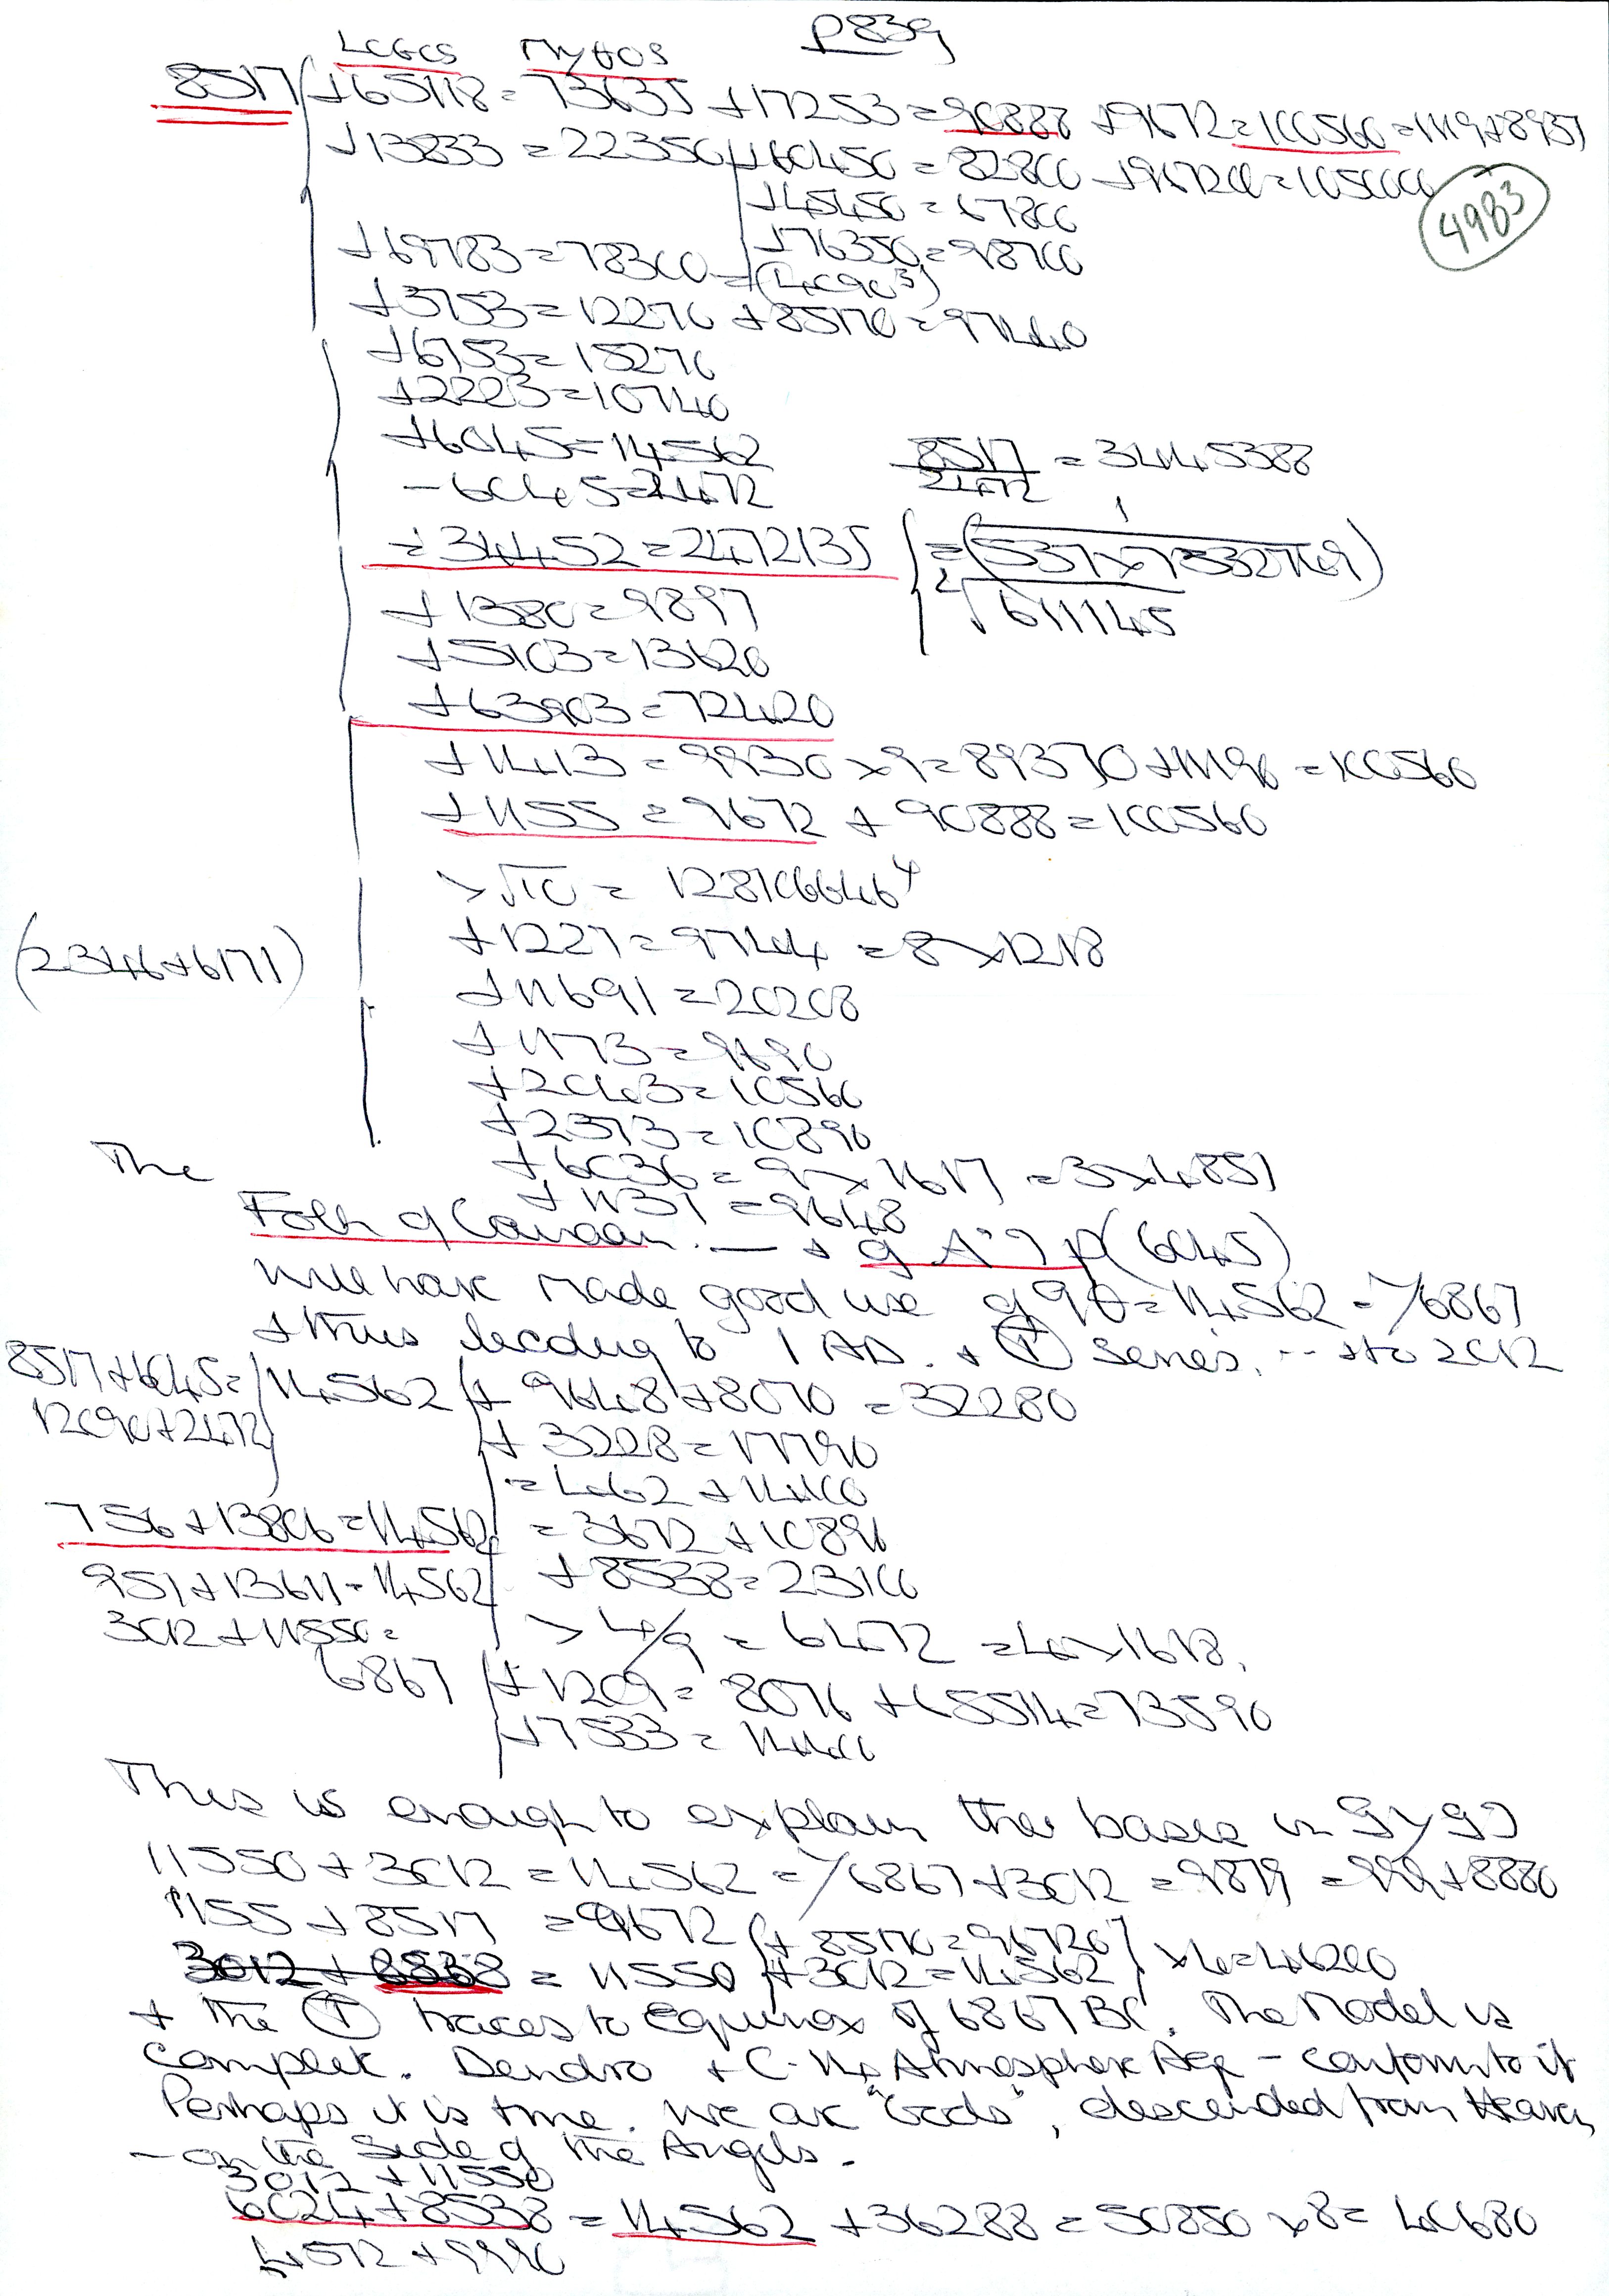 P839
LCGCS Mythos
8517 +65118 = 73635 +17253 = 90888 +9672 = 100560 = 11197+8937
+13833 = 22350 +60450 = 82800 +967200 = 1050000
+45450 = 67800
4983
+76350 = 98700
+69783 = 78300 = (4090³)
+3753 = 12270 +85170 = 97440
+6753 = 15270
+2223 = 10740
+6045 = 14562
8517/2472 = 3445388
-6045 = 2472
÷34452 = 2472135
= (537×7382769)
611145
+1380 = 9897
+5103 = 13620
+63903 = 72420
+1413 = 9930 ×9 = 89370 +11190 = 100560
+1155 = 9672 + 90888 = 100560
>√10 =
(2346+6171)
+1227 = 9744 = 8×1218
+11691 = 20208
+1173 = 9690
+2043 = 10560
+2373 = 10890
The
+6036 = 9×1617 = 3×4851
+1131 = 9648
Folk of Canaan. — + (6045)
will have made good use of = 14562 = 6867
+ thus leading to 1 AD. + T series. -- + to 2012
8517+6045 = 14562 + 9648+8070 = 32280
12090+2472
+ 3228 = 17790
= 462 + 14100
756+13806 = 14562 = 3672 + 10890
951+13611 = 14562 + 8538 = 23100
3012+11550 =
> 4/9 = 6472 = 4×1618.
6867 + 1209 = 8076 + 65514 = 73590
+7533 = 14400
This is enough to explain the bases in
11550 + 3012 = 14562 = 6867 + 3012 = 9879 = 999+8880
1155 + 8517 = 9672 + 85170 = 96720
3012 + 8538 = 11550 +3012 = 14562 ×4 = 46200
+ the T traces to Equinox of 6867 BC. The Model is
complete. Dendro + C-14 Atmosphere Age - conform to it
Perhaps it is time. We are "Gods", descended from Heaven
- on the side of the Angels.
3012 + 11550
6024 + 8538 = 14562 + 36288 = 50850 ×8 = 40680
4572 + 9990